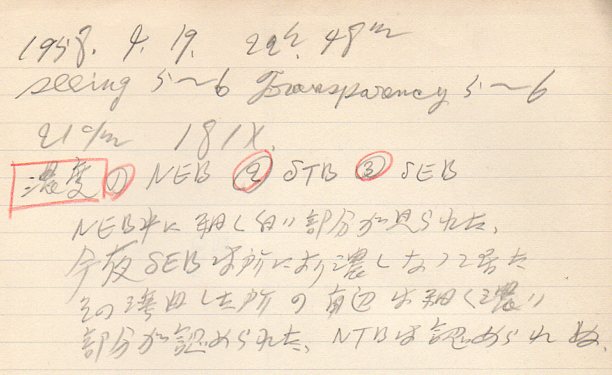 1958. 4. 19. 22h. 48m
seeing 5～6 Transparency 5～6
21cm 181X.
濃度 ① NEB ② STB ③ SEB
NEB中に細く白い部分が見られた。
今夜SEBは所により濃くなって居た
その湾曲した所の 辺は細く濃い
部分が認められた、NTBは認められぬ。